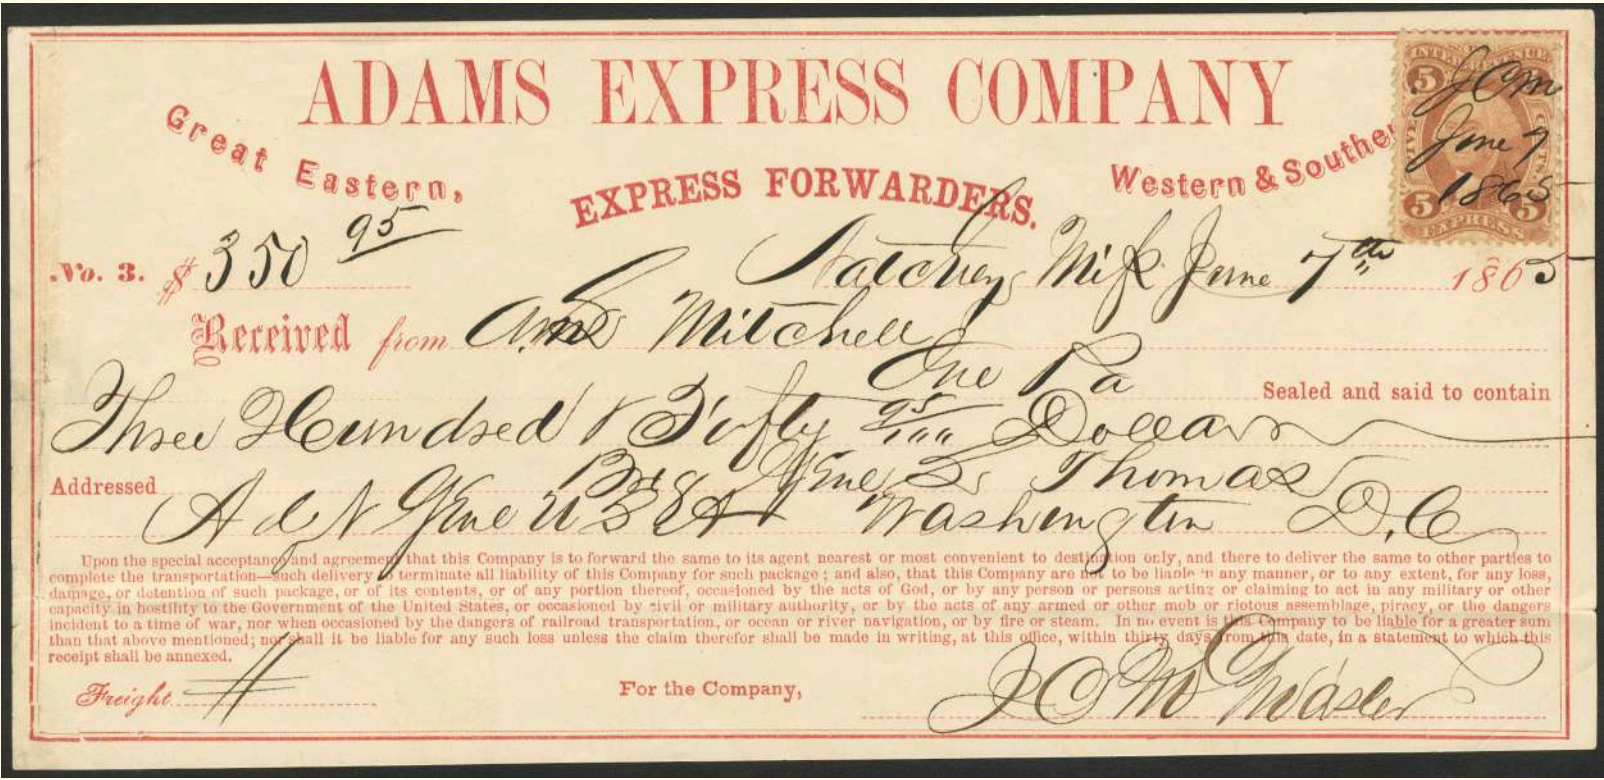 ADAMS EXPRESS COMPANY
Great Eastern, EXPRESS FORWARDERS. Western & Souther
INTER REVENUE
5 FIVE CENTS 5
5 EXPRESS 5
June 7
1865
No. 3. $350 95 Natchez Miss June 7th 1865
Received from Mitchell
One Pa Sealed and said to contain
Three Hundred & Fifty 95/100 Dollars
Addressed Genl L. Thomas
Adjt Genl U S A Washington D.C.
Upon the special acceptance and agreement that this Company is to forward the same to its agent nearest or most convenient to destination only, and there to deliver the same to other parties to
complete the transportation—such delivery to terminate all liability of this Company for such package; and also, that this Company are not to be liable in any manner, or to any extent, for any loss,
damage, or detention of such package, or of its contents, or of any portion thereof, occasioned by the acts of God, or by any person or persons acting or claiming to act in any military or other
capacity in hostility to the Government of the United States, or occasioned by civil or military authority, or by the acts of any armed or other mob or riotous assemblage, piracy, or the dangers
incident to a time of war, nor when occasioned by the dangers of railroad transportation, or ocean or river navigation, or by fire or steam. In no event is this Company to be liable for a greater sum
than that above mentioned; nor shall it be liable for any such loss unless the claim therefor shall be made in writing, at this office, within thirty days from this date, in a statement to which this
receipt shall be annexed.
Freight For the Company,